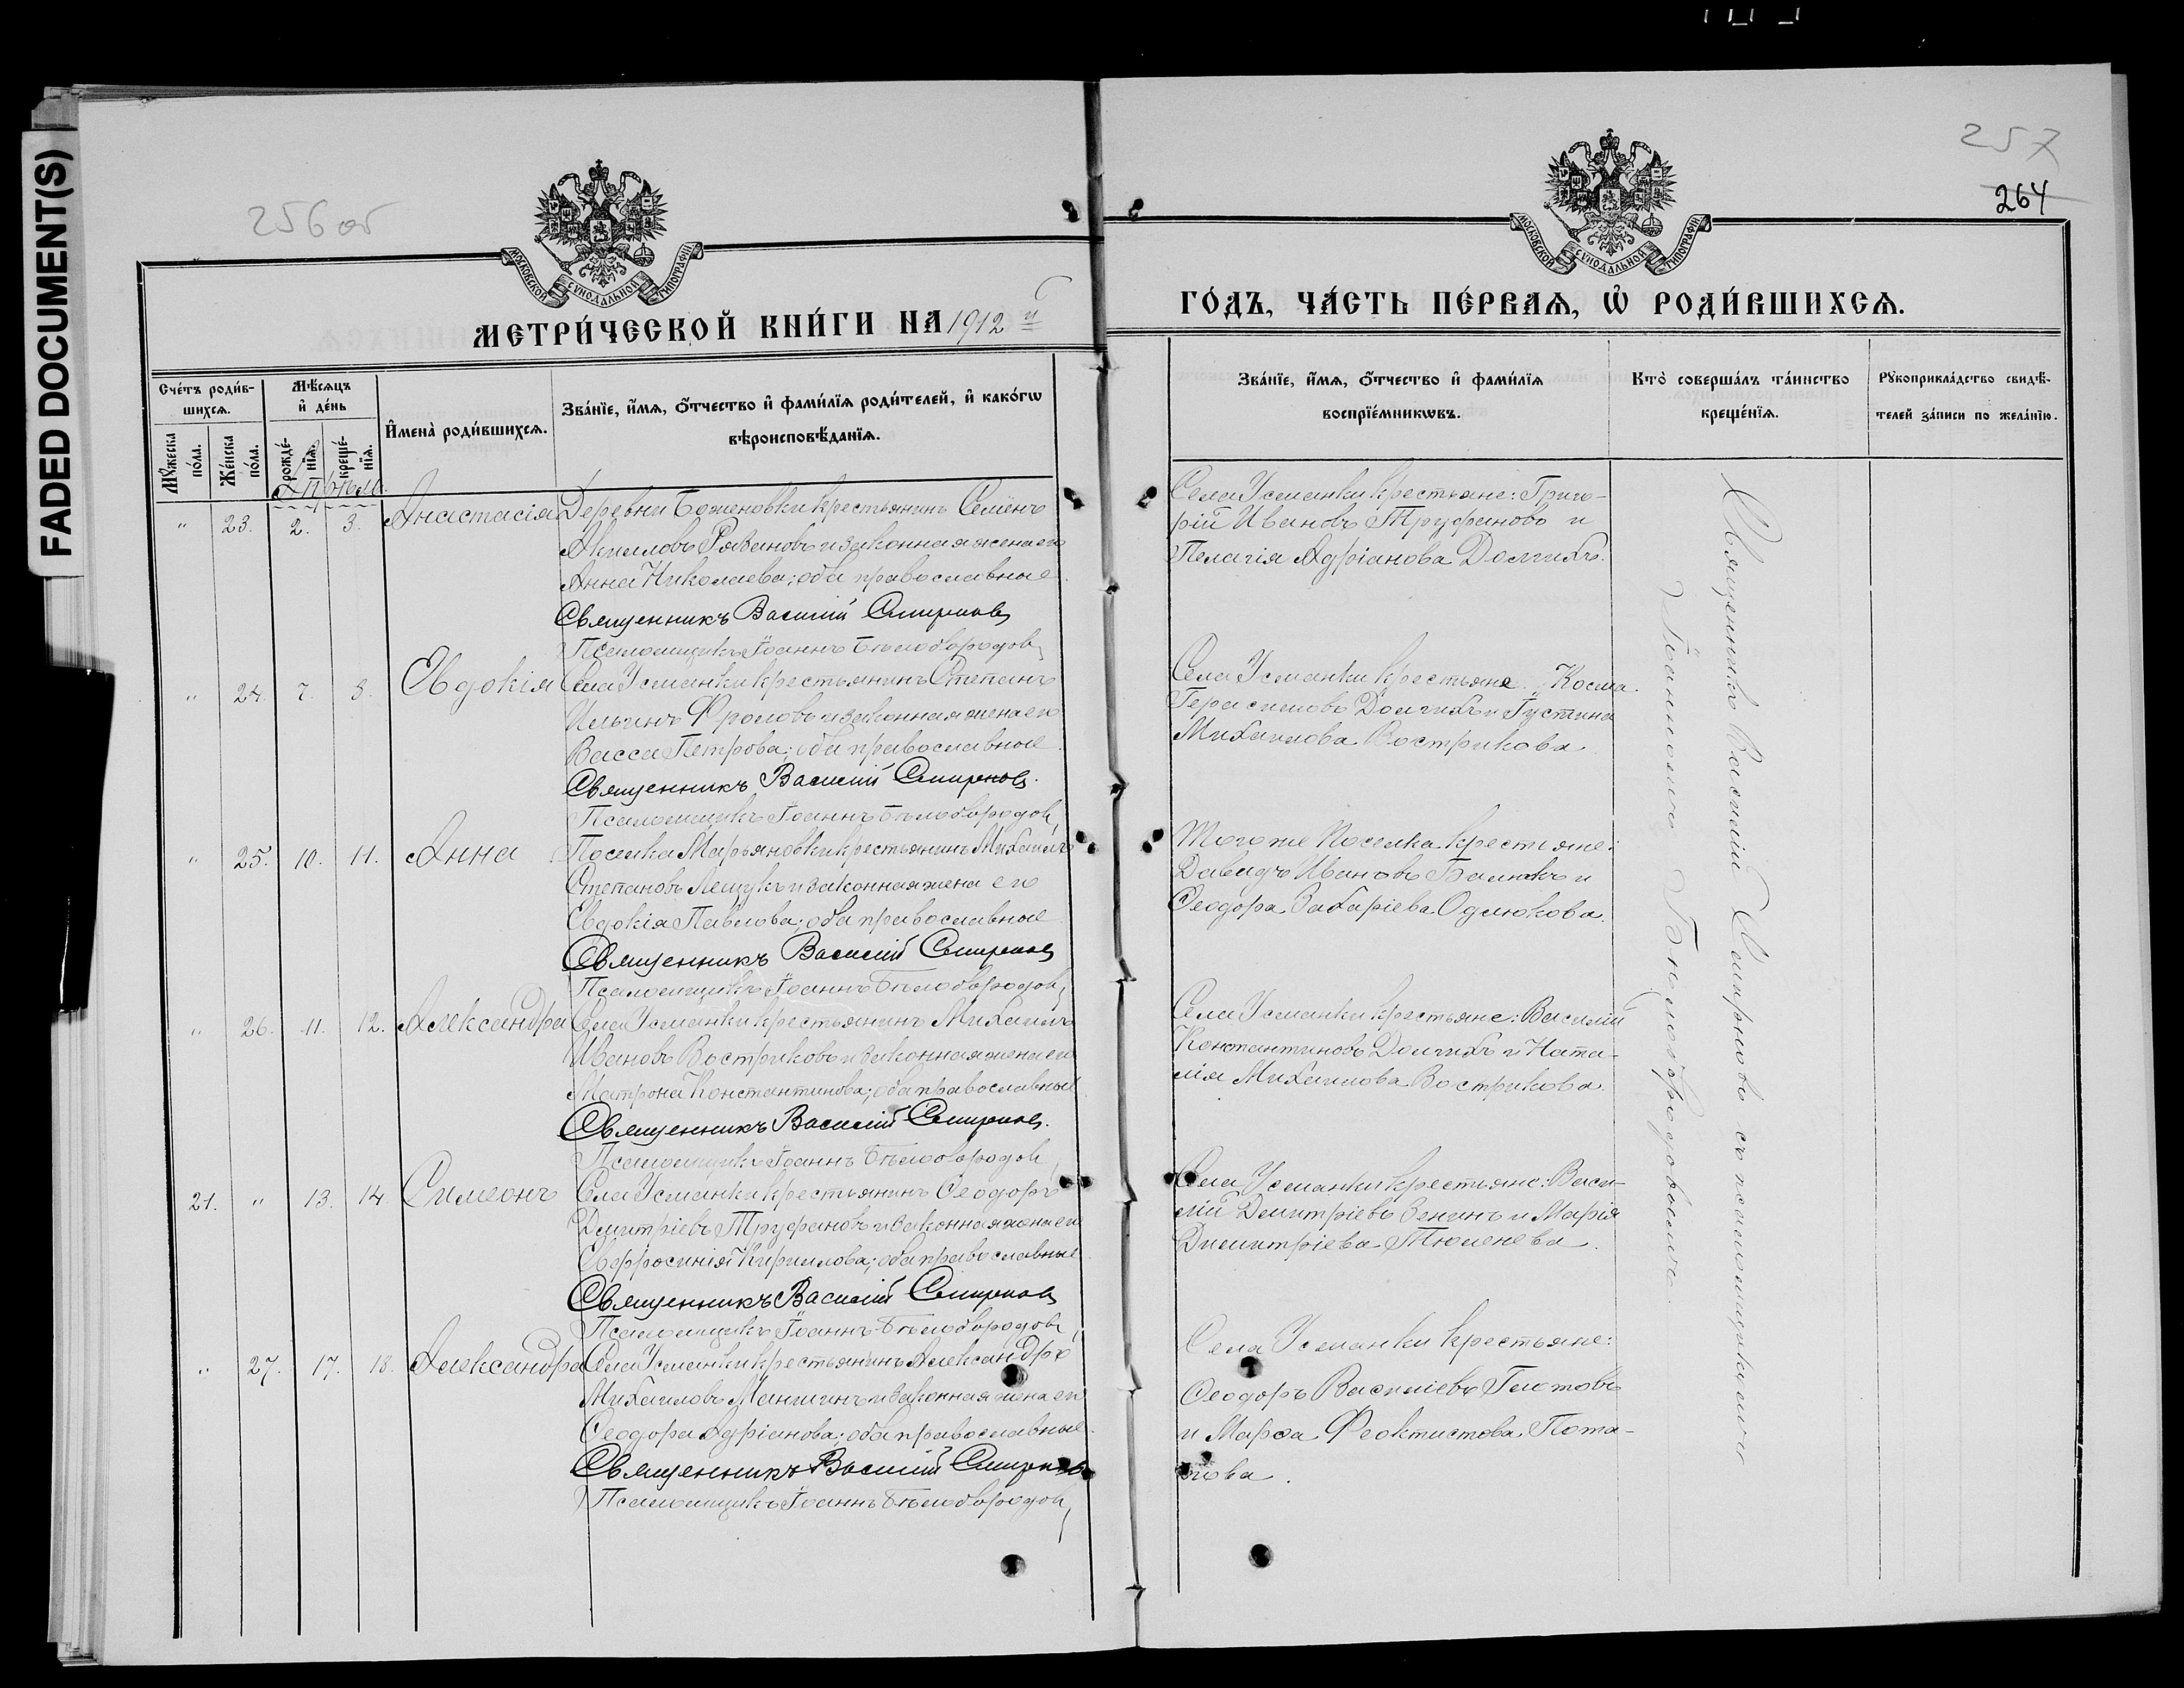 FADED DOCUMENT(S)
256 об
257
264
МОСКОВСКОЙ СѴНОДАЛЬНОЙ ТИПОГРАФІИ
МОСКОВСКОЙ СѴНОДАЛЬНОЙ ТИПОГРАФІИ
МЕТРИ́ЧЕСКОЙ КНИ́ГИ НА 1912 й
ГО́ДЪ, ЧА́СТЬ ПЕ́РВАѦ, Ѡ҆ РОДИ́ВШИХСѦ.
Сче́тъ роди́в-
шихсѧ.
Мѣ́сѧцъ
и҆ де́нь
Мꙋ́жеска
по́ла.
Же́нска
по́ла.
рожде́-
нїѧ.
креще́-
нїѧ.
И҆мена̀ роди́вшихсѧ.
Зва́нїе, и҆́мѧ, ѻ҆́тчество и҆ фами́лїѧ роди́телей, и҆ како́гѡ
вѣроисповѣ́данїѧ.
Зва́нїе, и҆́мѧ, ѻ҆́тчество и҆ фами́лїѧ
воспрїе́мникѡвъ.
Кто̀ соверша́лъ та́инство
креще́нїѧ.
Рꙋкоприкла́дство свидѣ́-
телей за́писи по жела́нїю.
Апрѣль
" 23. 2. 3. Анастасія
Деревни Боженовки крестьянинъ Семенъ
Рязановъ и законная жена его
Анна Николаева; оба православные.
Священникъ Василій Смирновъ
Псаломщикъ Іоаннъ Бѣлобородовъ
Села Усманки крестьяне: Григо-
рій Ивановъ Труфановъ и
Пелагія Адріанова Долгихъ.
" 24. 7. 8. Евдокія
Села Усманки крестьянинъ Степанъ
Ильинъ Фроловъ и законная жена его
Васса Петрова; оба православные.
Священникъ Василій Смирновъ.
Псаломщикъ Іоаннъ Бѣлобородовъ
Села Усманки крестьяне: Косма
Герасимовъ Долгихъ и Іустина
Михаилова Вострикова.
" 25. 10. 11. Анна
Поселка Марьяновки крестьянинъ Михаилъ
Степановъ Лещукъ и законная жена его
Евдокія Павлова; оба православные
Священникъ Василій Смирновъ
Псаломщикъ Іоаннъ Бѣлобородовъ
Того же поселка крестьяне:
Давидъ Ивановъ и
Ѳеодора Захаріева Одинокова.
" 26. 11. 12. Александра
Села Усманки крестьянинъ Михаилъ
Ивановъ Востриковъ и законная жена его
Матрона Константинова; оба православные
Священникъ Василій Смирновъ.
Псаломщикъ Іоаннъ Бѣлобородовъ
Села Усманки крестьяне: Василій
Константиновъ Долгихъ и Ната-
лія Михаилова Вострикова.
21. " 13. 14. Симеонъ
Села Усманки крестьянинъ Ѳеодоръ
Дмитріевъ Труфановъ и законная жена его
Евфросинія Кириллова; оба православные
Священникъ Василій Смирновъ
Псаломщикъ Іоаннъ Бѣлобородовъ
Села Усманки крестьяне: Васи-
лій Дмитріевъ Зенинъ и Марія
Димитріева Тюменева.
" 27. 17. 18. Александра
Села Усманки крестьянинъ Александръ
Михаиловъ и законная жена его
Ѳеодора Адріанова; оба православные.
Священникъ Василій Смирновъ
Псаломщикъ Іоаннъ Бѣлобородовъ
Села Усманки крестьяне:
Ѳеодоръ Василіевъ Глотовъ
и Марѳа Феоктистова Пота-
пова.
Священникъ Василій Смирновъ съ псаломщикомъ
Іоанномъ Бѣлобородовымъ.